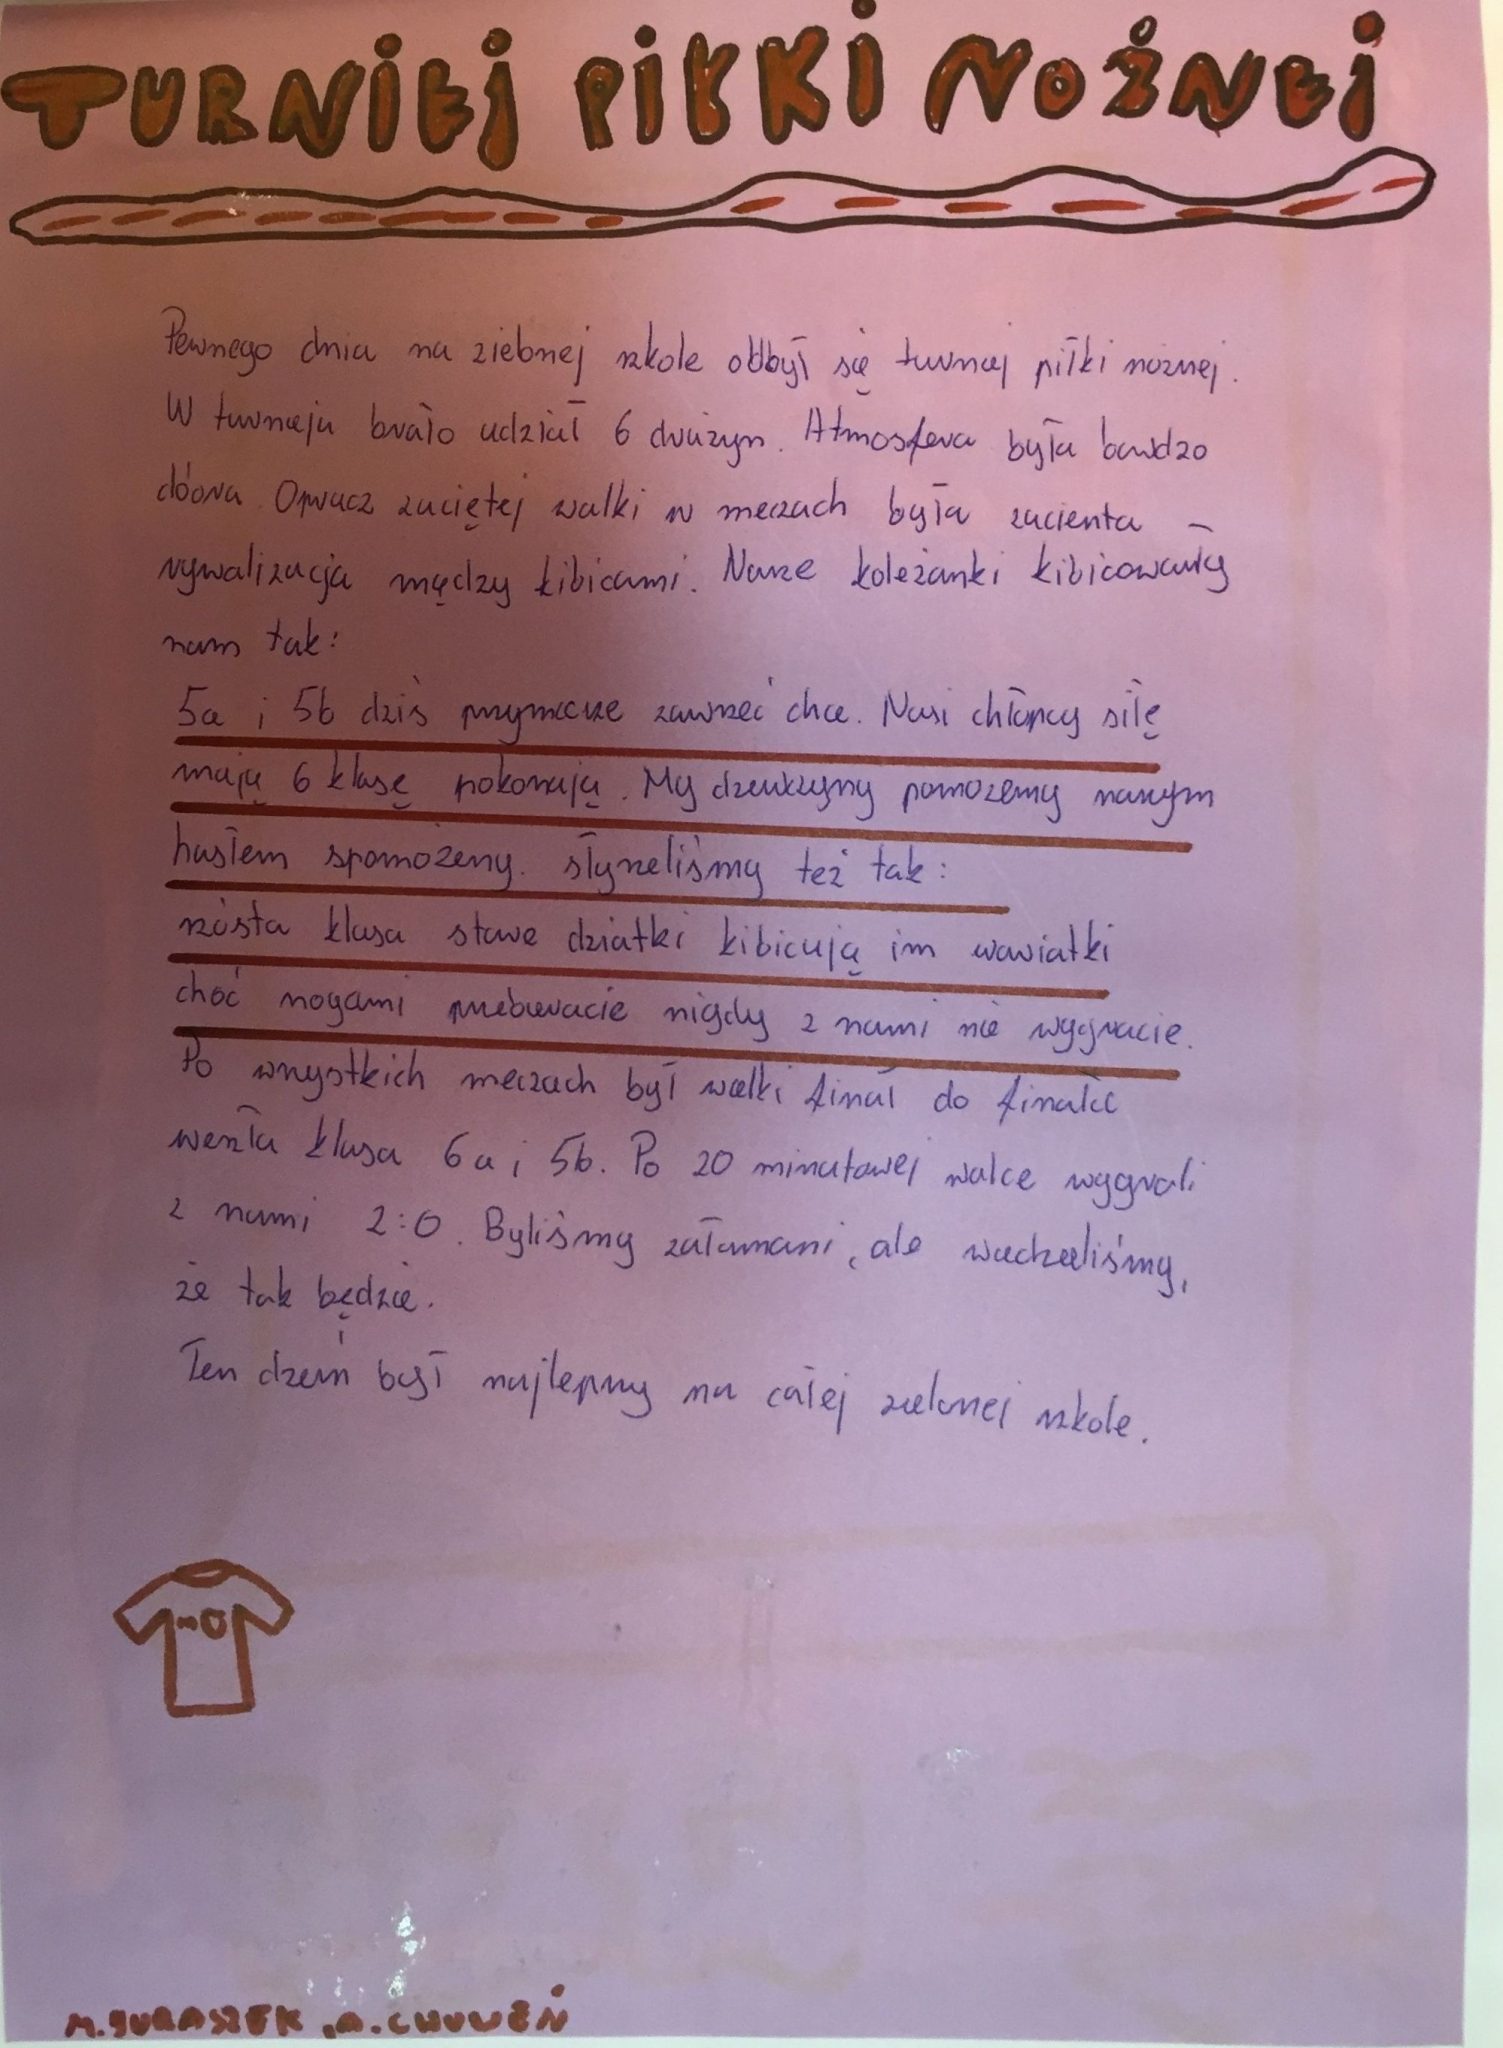 TURNIEJ PIŁKI NOŻNEJ
Pewnego dnia na ziebnej szkole odbył się turniej piłki nożnej.
W turnieju brało udział 6 drużyn. Atmosfera była bardzo
dobra. Oprucz zaciętej walki w meczach była zacienta -
rywalizacja między kibicami. Nasze koleżanki kibicowały
nam tak:
5a i 5b dziś przymieże zawrzeć chce. Nasi chłopcy siłę
mają 6 klasę pokonają. My dziewczyny pomożemy naszym
hasłem spomożemy. słyszeliśmy też tak:
szósta klasa stare dziatki kibicują im wariatki
choć nogami przebieracie nigdy z nami nie wygracie.
Po wszystkich meczach był wielki finał do finału
weszła klasa 6a i 5b. Po 20 minutowej walce wygrali
z nami 2:0. Byliśmy załamani, ale wiedzieliśmy,
że tak będzie.
Ten dzień był najlepszy na całej zielonej szkole.
M. JURASZEK, A.